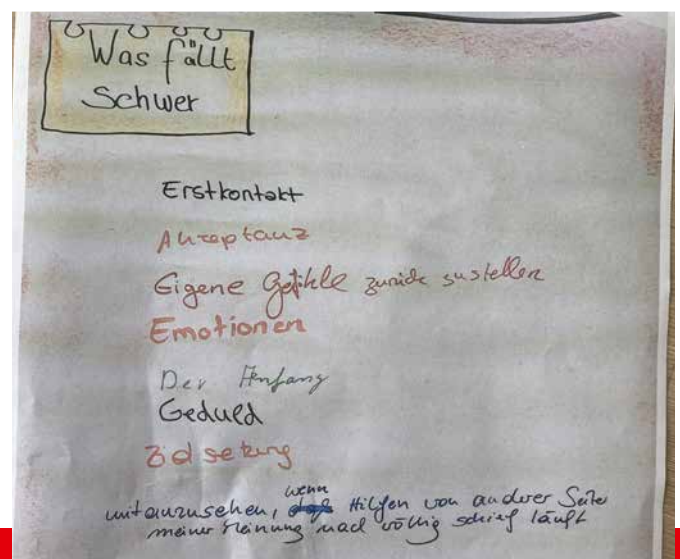 Was fällt
Schwer
Erstkontakt
Akzeptanz
Eigene Gefühle zurück zustellen
Emotionen
Der Anfang
Geduld
Zielsetzung
wenn
mitanzusehen, Hilfen von anderer Seite
meiner Meinung nach völlig schief läuft